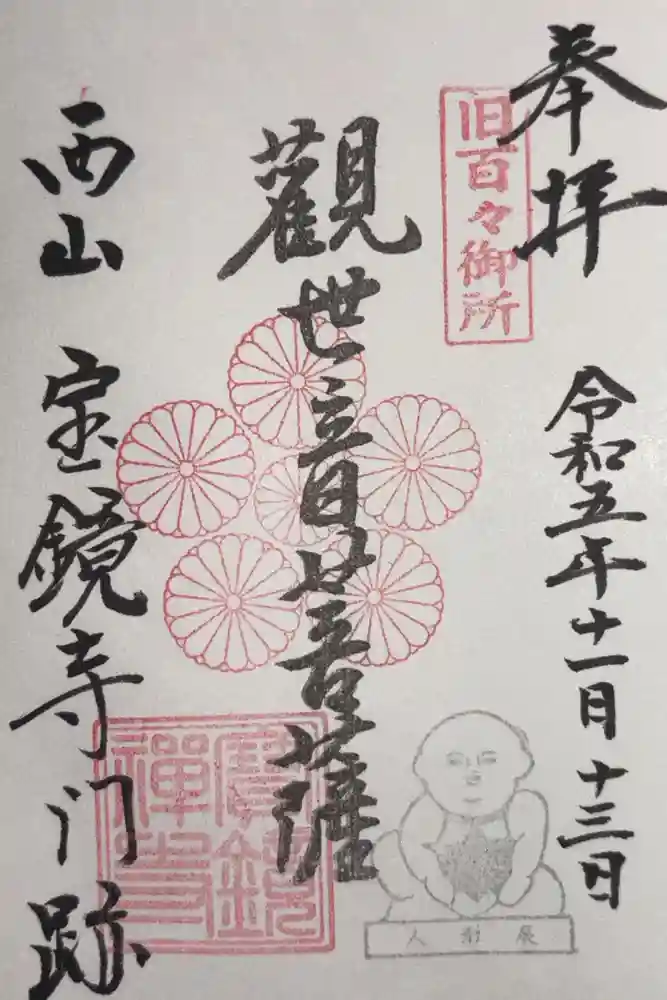 奉拝
令和五年十一月十三日
旧百々御所
觀世音菩薩
西山 宝鏡寺门跡
寶鏡
禅寺
人形展